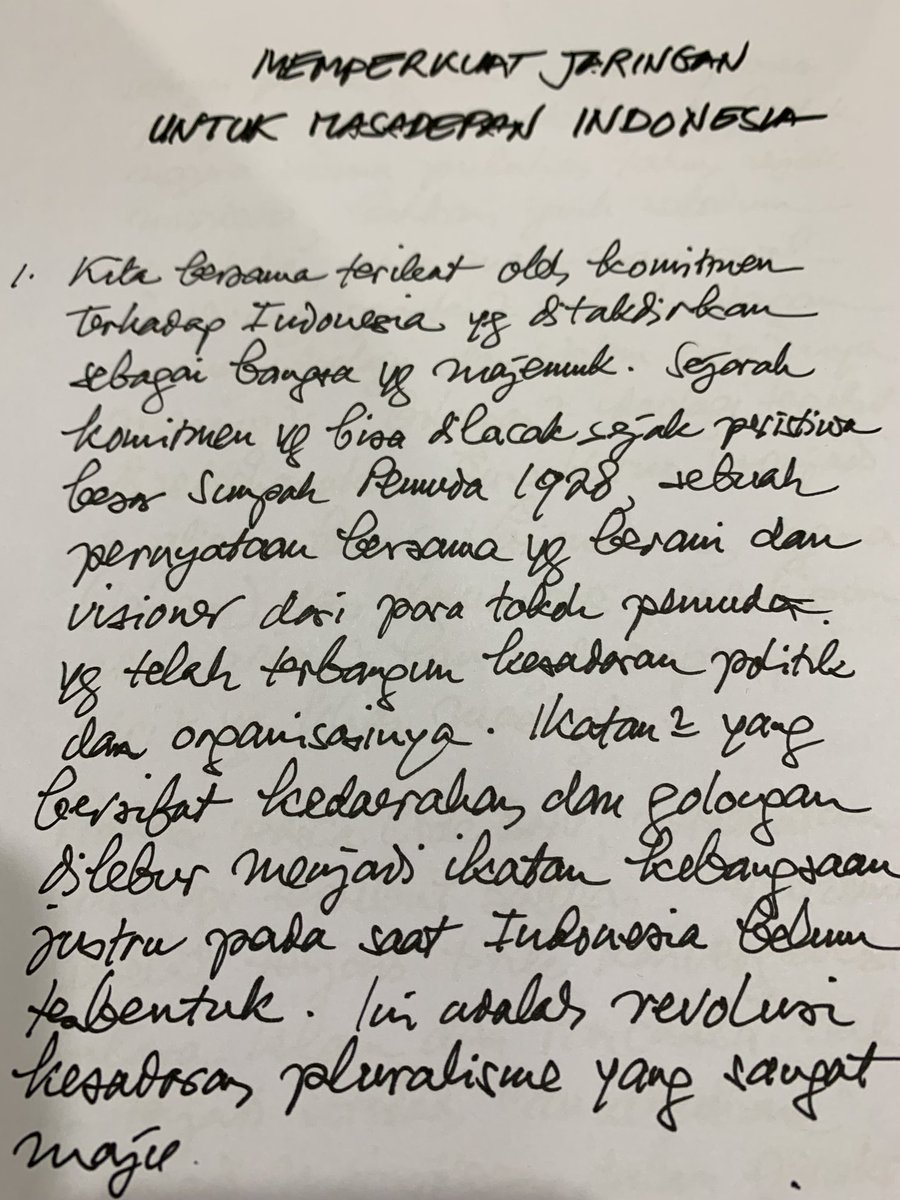 MEMPERKUAT JARINGAN
UNTUK MASADEPAN INDONESIA
1. Kita bersama terikat oleh komitmen
terhadap Indonesia yg ditakdirkan
sebagai bangsa yg majemuk. Sejarah
komitmen yg bisa dilacak sejak peristiwa
besar Sumpah Pemuda 1928, sebuah
pernyataan bersama yg berani dan
visioner dari para tokoh pemuda
yg telah terbangun kesadaran politik
dan organisasinya. Ikatan2 yang
bersifat kedaerahan dan golongan
dilebur menjadi ikatan kebangsaan
justru pada saat Indonesia belum
terbentuk. Ini adalah revolusi
kesadaran pluralisme yang sangat
maju.